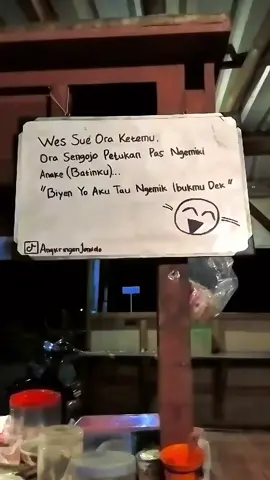 Wes Sue Ora Ketemu.
Ora Sengojo Petukan Pas Ngemini
Anake (Batinku)...
"Biyen Yo Aku Tau Ngemik Ibukmu Dek"